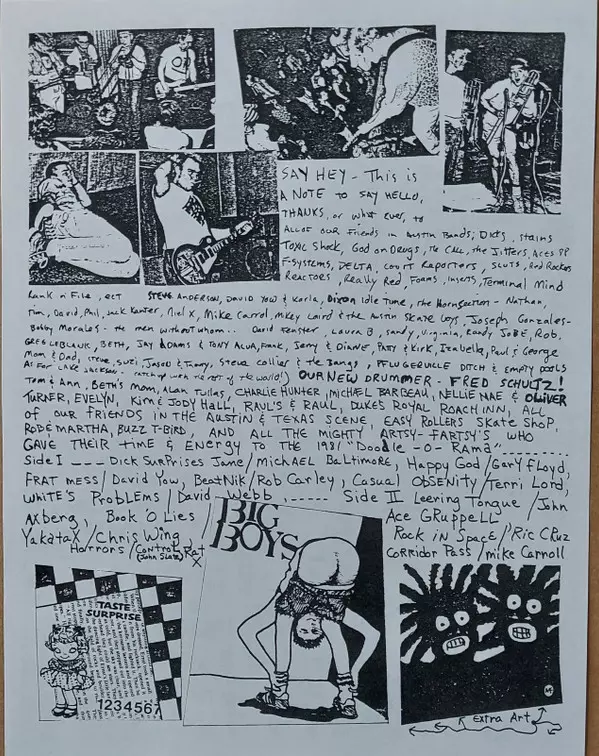 SAY HEY - This is
A NOTE TO SAY HELLO,
THANKS, or what ever, to
ALL OF OUR Friends in AUSTIN BANDS; Dicks, Stains
TOXIC Shock, God on Drugs, The CALL, the Jitters, Aces 88
F-Systems, DELTA, Court Reporters, SLUTS, Red Rockers
REACTORS, Really Red, Foams, Inserts, Terminal Mind
Rank n' File, ect STEVE ANDERSON, DAVID YOW & Karla, Dixon Idle Time, The Horn Section - Nathan,
Tim, David, Phil, Jack Kanter, Niel X, Mike Carrol, Mikey Laird & the Austin Skate boys, Joseph Gonzales-
Bobby Morales - the men without whom.. David Fenster, Laura B, sandy, Virginia, Randy JOBE, Rob,
GREG LEBLANK, BETH, JAY ADAMS & TONY ALVA, Frank, Jerry & DIANNE, PATY & KIRK, Izabella, Paul & George
Mom & Dad, Steve, Suzi, Jason & Tammy, Steve Collier & the Bangs, PFLUGERVILLE DITCH & EMPTY POOLS
AS FOR LAKE JACKSON.. (catch up with the rest of the world!) OUR NEW DRUMMER - FRED SCHULTZ!
Tom & Ann, BETH'S MOM, ALAN TULLAS, CHARLIE HUNTER, MICHAEL BARBEAU, NELLIE MAE & OLIVER
TURNER, EVELYN, KIM & JODY HALL, RAUL'S & RAUL, DUKES ROYAL ROACH INN, ALL
OF OUR FRIENDS IN THE AUSTIN & TEXAS SCENE, EASY ROLLERS SKATE SHOP,
ROD & MARTHA, BUZZ T-BIRD, AND ALL THE MIGHTY ARTSY-FARTSY'S WHO
GAVE THEIR TIME & ENERGY TO THE 1981 "Doodle-O-Rama"
Side I --- DICK SURPRISES JAME/MICHAEL BALTIMORE, HAPPY GOD/GARY FLOYD,
FRAT MESS/DAVID YOW, BEATNIK/ROB CARLEY, CASUAL OBSENITY/TERRI LORD,
WHITE'S PROBLEMS/DAVID WEBB, ----- Side II Leering Tongue/John
Axberg, Book 'O Lies Ace GRUPPELL
YAKATAX/CHRIS WING, Rock IN Space/RIC CRUZ
Horrors/Control Rat X CORRIDOR PASS/MIKE CARROLL
(John Slate)
BIG
BOYS
TASTE
SURPRISE
1234567
Extra Art